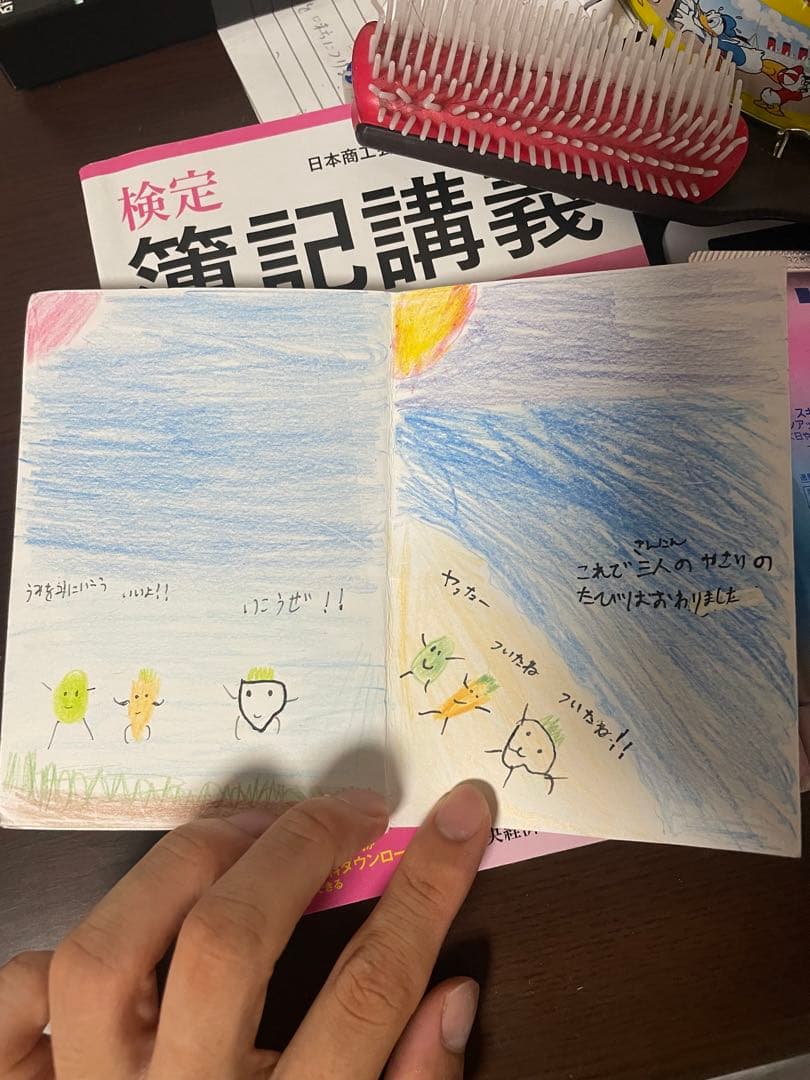 日本商工会
検定
簿記講義
うみを見にいこう
いいよ!!
いこうぜ!!
やったー
ついたね
ついたね!!
さんにん
これで三人のやさいの
たびはおわりました
ダウンロー
できる